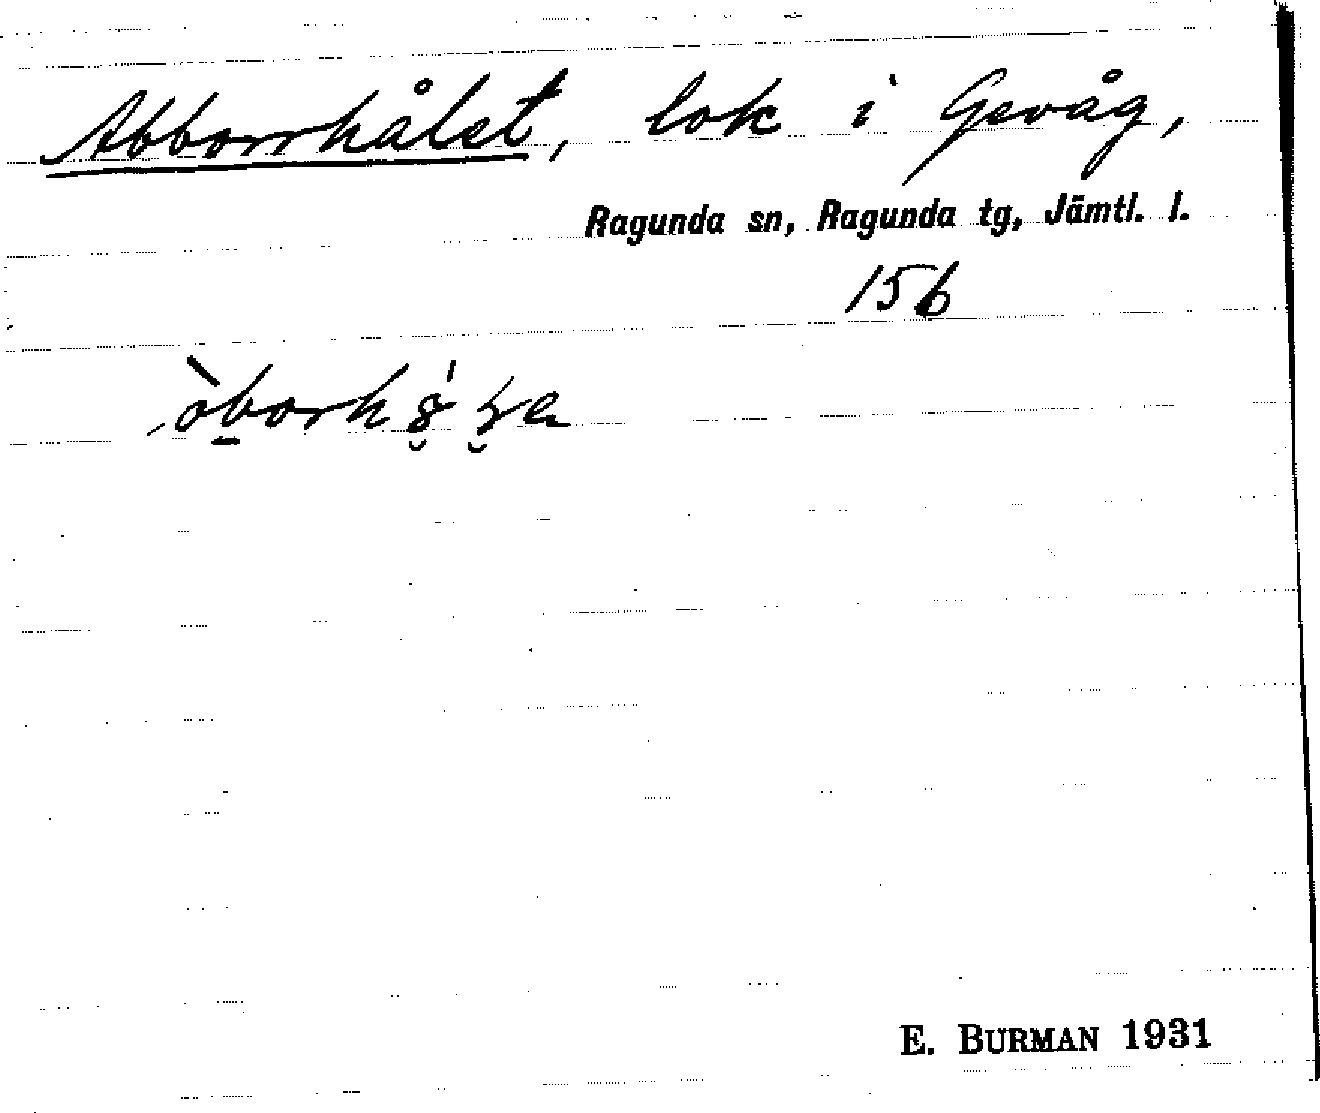 Abborrhålet, lok i Gevåg,
Ragunda sn, Ragunda tg, Jämtl. l.
156
E. BURMAN 1931